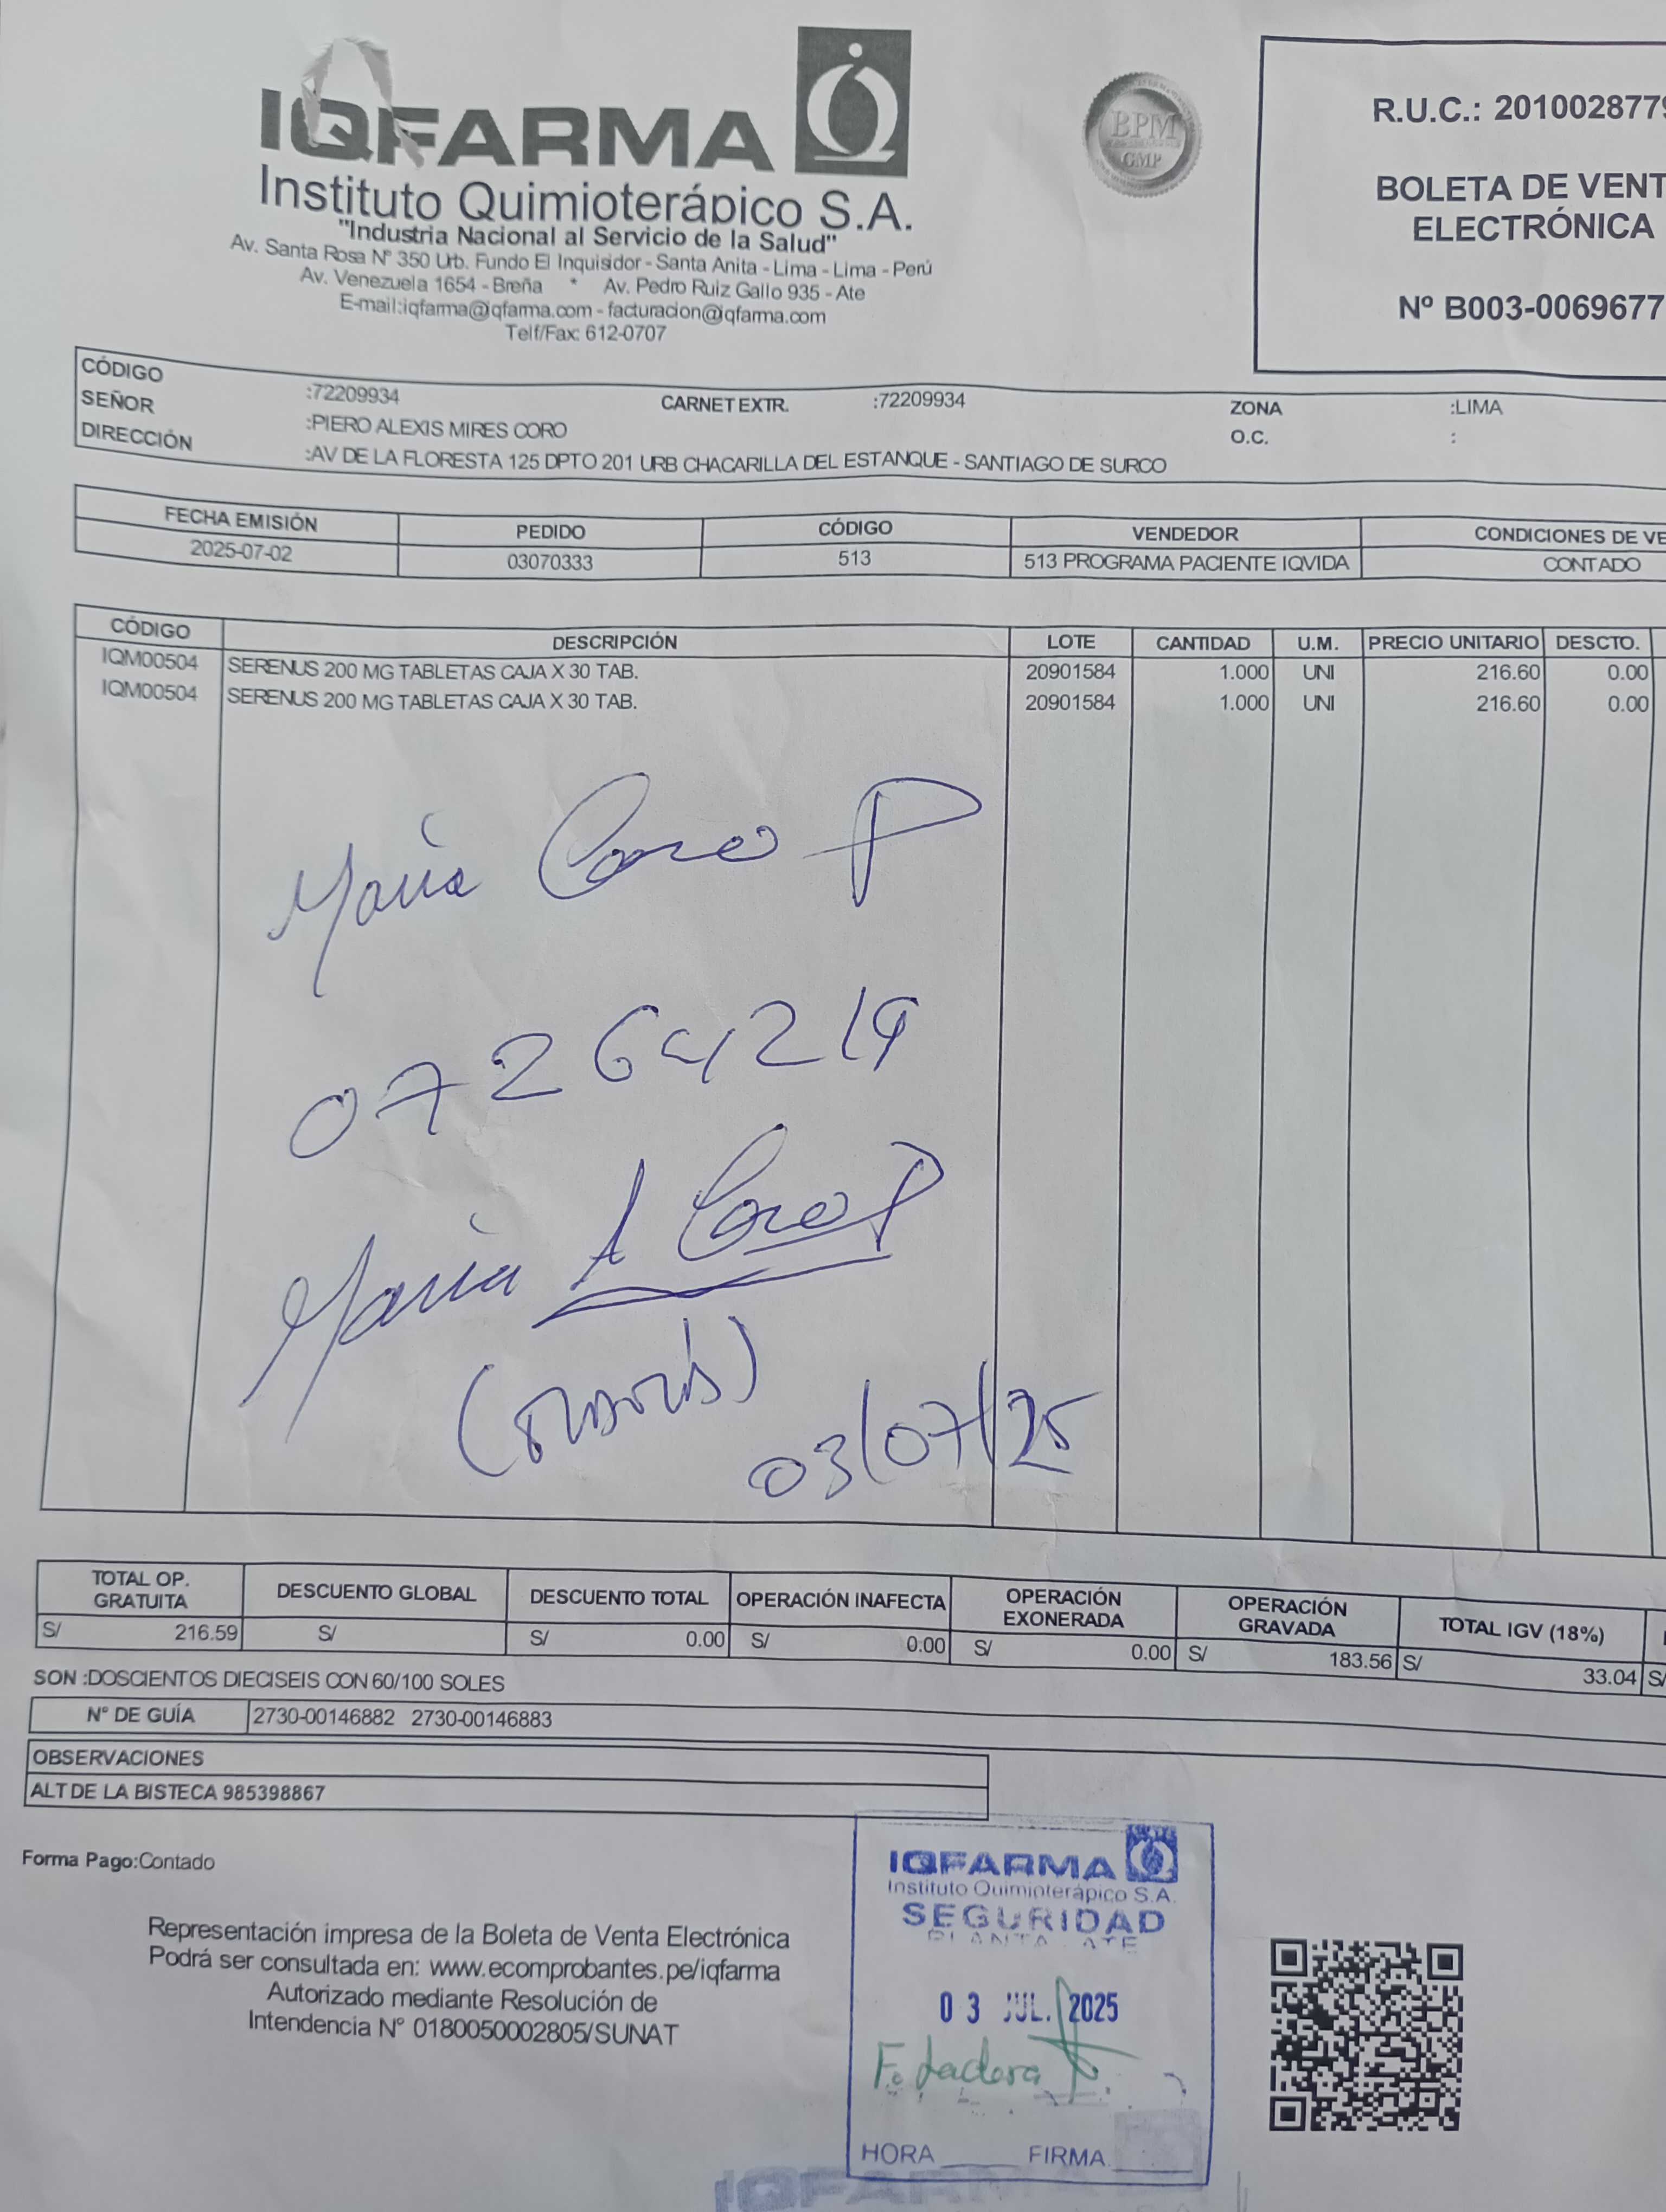 IQFARMA
Instituto Quimioterápico S.A.
"Industria Nacional al Servicio de la Salud"
Av. Santa Rosa Nº 350 Urb. Fundo El Inquisidor - Santa Anita - Lima - Lima - Perú
Av. Venezuela 1654 - Breña * Av. Pedro Ruiz Gallo 935 - Ate
E-mail:iqfarma@iqfarma.com - facturacion@iqfarma.com
Telf/Fax: 612-0707
BPM
GMP
R.U.C.: 2010028779
BOLETA DE VENT
ELECTRÓNICA
Nº B003-0069677
CÓDIGO :72209934 CARNET EXTR. :72209934 ZONA :LIMA
SEÑOR :PIERO ALEXIS MIRES CORO O.C. :
DIRECCIÓN :AV DE LA FLORESTA 125 DPTO 201 URB CHACARILLA DEL ESTANQUE - SANTIAGO DE SURCO
FECHA EMISIÓN PEDIDO CÓDIGO VENDEDOR CONDICIONES DE VE
2025-07-02 03070333 513 513 PROGRAMA PACIENTE IQVIDA CONTADO
CÓDIGO DESCRIPCIÓN LOTE CANTIDAD U.M. PRECIO UNITARIO DESCTO.
IQM00504 SERENUS 200 MG TABLETAS CAJA X 30 TAB. 20901584 1.000 UNI 216.60 0.00
IQM00504 SERENUS 200 MG TABLETAS CAJA X 30 TAB. 20901584 1.000 UNI 216.60 0.00
María Coro P
07264219
María A Coro P
03/07/25
TOTAL OP. GRATUITA DESCUENTO GLOBAL DESCUENTO TOTAL OPERACIÓN INAFECTA OPERACIÓN EXONERADA OPERACIÓN GRAVADA TOTAL IGV (18%)
S/ 216.59 S/ S/ 0.00 S/ 0.00 S/ 0.00 S/ 183.56 S/ 33.04 S/
SON :DOSCIENTOS DIECISEIS CON 60/100 SOLES
N° DE GUÍA 2730-00146882 2730-00146883
OBSERVACIONES
ALT DE LA BISTECA 985398867
Forma Pago:Contado
Representación impresa de la Boleta de Venta Electrónica
Podrá ser consultada en: www.ecomprobantes.pe/iqfarma
Autorizado mediante Resolución de
Intendencia N° 0180050002805/SUNAT
IQFARMA
Instituto Quimioterápico S.A.
SEGURIDAD
PLANTA - ATE
03 JUL. 2025
HORA FIRMA
IQFARMA